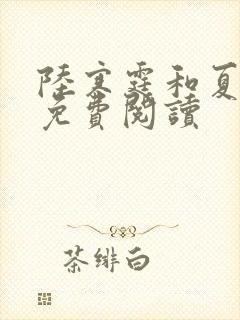 陸寒霆和夏
免費閱讀
茶緋白